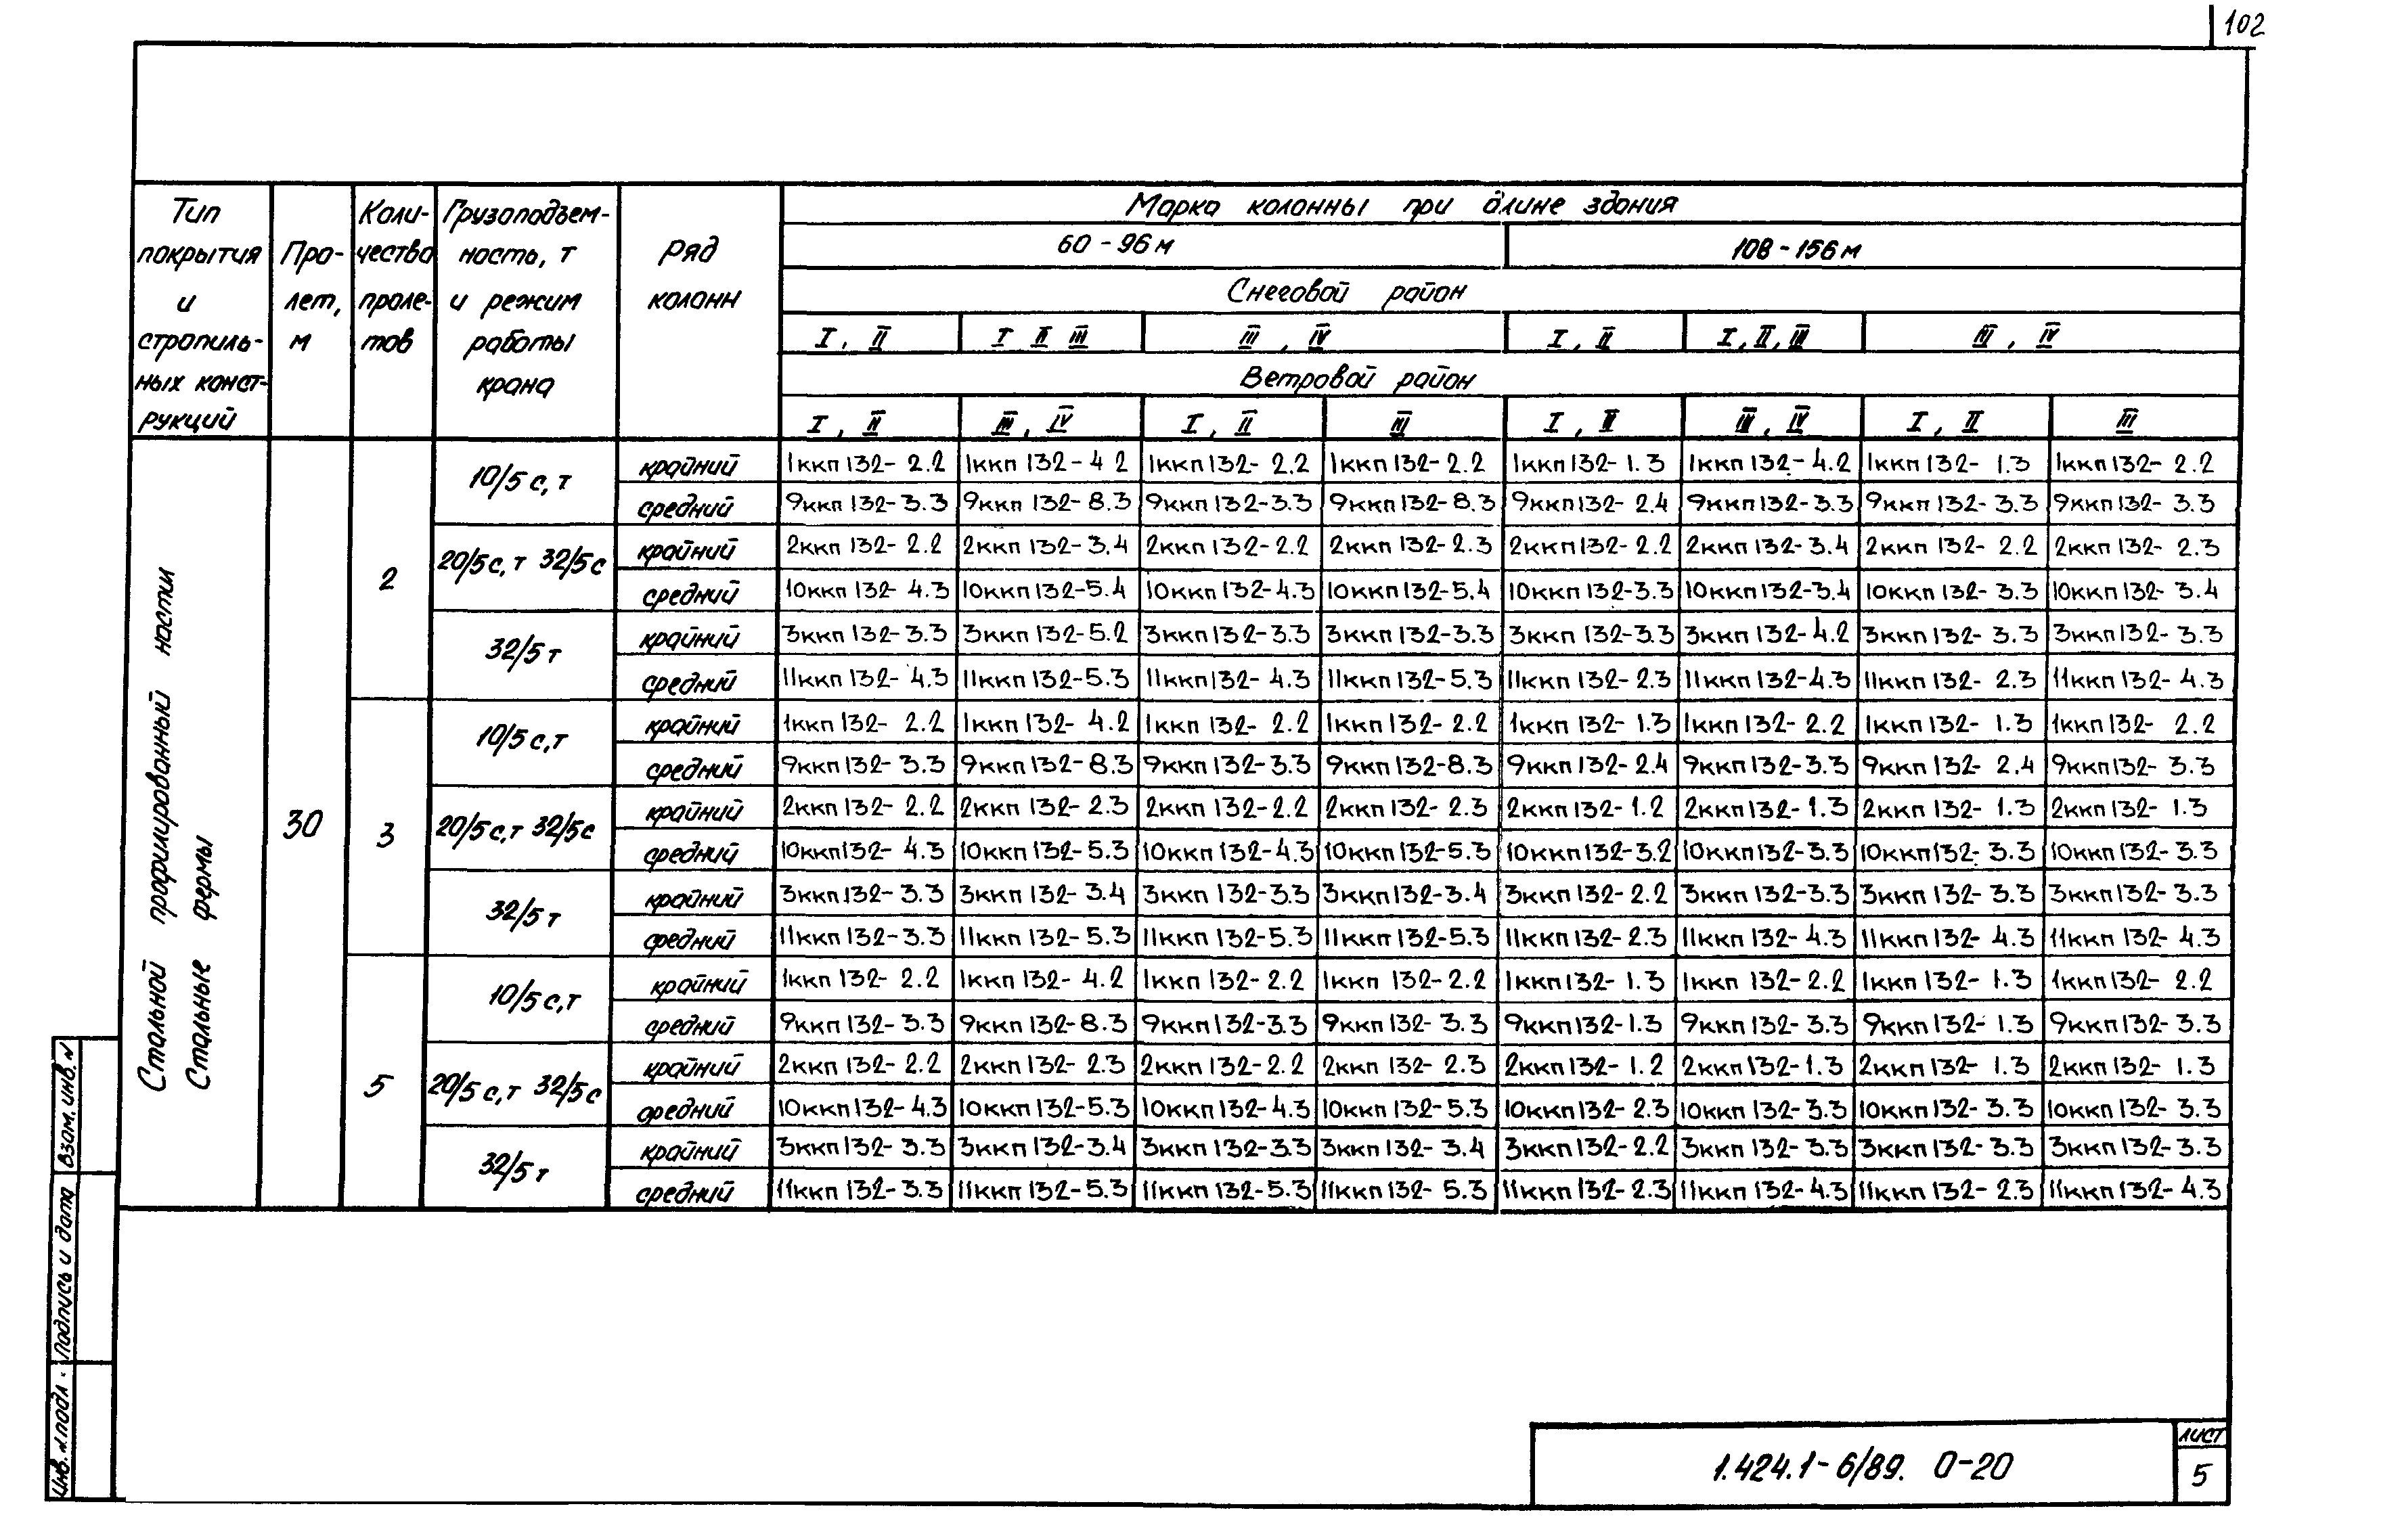 102
Тип покрытия и стропиль- ных конст- рукций
Про- лет, м
Коли- чество проле- тов
Грузоподъем- ность, т и режим работы крана
Ряд колонн
Марка колонны при длине здания
60 - 96 м 108 - 156 м
Снеговой район
I, II I II III III, IV I, II I, II, III III, IV
Ветровой район
I, II III, IV I, II III I, II III, IV I, II III
Стальной профилированный насти
Стальные фермы
30
2
10/5 с, т крайний 1ккп 132- 2.2 1ккп 132- 4 2 1ккп 132- 2.2 1ккп 132- 2.2 1ккп 132- 1.3 1ккп 132- 4.2 1ккп 132- 1.3 1ккп 132- 2.2
средний 9ккп 132- 3.3 9ккп 132- 8.3 9ккп 132-3.3 9ккп 132-8.3 9ккп 132- 2.4 9ккп 132-3.3 9ккп 132- 3.3 9ккп 132- 3.3
20/5 с, т 32/5 с крайний 2ккп 132- 2.2 2ккп 132-3.4 2ккп 132-2.2 2ккп 132-2.3 2ккп 132-2.2 2ккп 132-3.4 2ккп 132- 2.2 2ккп 132- 2.3
средний 10ккп 132- 4.3 10ккп 132-5.4 10ккп 132-4.3 10ккп 132-5.4 10ккп 132-3.3 10ккп 132-3.4 10ккп 132- 3.3 10ккп 132- 3.4
32/5 т крайний 3ккп 132-3.3 3ккп 132-5.2 3ккп 132-3.3 3ккп 132-3.3 3ккп 132-3.3 3ккп 132-4.2 3ккп 132- 3.3 3ккп 132- 3.3
средний 11ккп 132- 4.3 11ккп 132-5.3 11ккп 132- 4.3 11ккп 132-5.3 11ккп 132- 2.3 11ккп 132-4.3 11ккп 132- 2.3 11ккп 132- 4.3
3
10/5 с, т крайний 1ккп 132- 2.2 1ккп 132- 4.2 1ккп 132- 2.2 1ккп 132- 2.2 1ккп 132- 1.3 1ккп 132- 2.2 1ккп 132- 1.3 1ккп 132- 2.2
средний 9ккп 132- 3.3 9ккп 132- 8.3 9ккп 132-3.3 9ккп 132-8.3 9ккп 132- 2.4 9ккп 132-3.3 9ккп 132- 2.4 9ккп 132- 3.3
20/5 с, т 32/5 с крайний 2ккп 132- 2.2 2ккп 132- 2.3 2ккп 132-2.2 2ккп 132- 2.3 2ккп 132- 1.2 2ккп 132-1.3 2ккп 132- 1.3 2ккп 132- 1.3
средний 10ккп 132- 4.3 10ккп 132-5.3 10ккп 132-4.3 10ккп 132-5.3 10ккп 132-3.2 10ккп 132-3.3 10ккп 132- 3.3 10ккп 132- 3.3
32/5 т крайний 3ккп 132- 3.3 3ккп 132- 3.4 3ккп 132-3.3 3ккп 132-3.4 3ккп 132- 2.2 3ккп 132-3.3 3ккп 132- 3.3 3ккп 132- 3.3
средний 11ккп 132-3.3 11ккп 132- 5.3 11ккп 132-5.3 11ккп 132-5.3 11ккп 132- 2.3 11ккп 132- 4.3 11ккп 132- 4.3 11ккп 132- 4.3
5
10/5 с, т крайний 1ккп 132- 2.2 1ккп 132- 4.2 1ккп 132- 2.2 1ккп 132- 2.2 1ккп 132- 1.3 1ккп 132-2.2 1ккп 132- 1.3 1ккп 132- 2.2
средний 9ккп 132- 3.3 9ккп 132-8.3 9ккп 132-3.3 9ккп 132- 3.3 9ккп 132-1.3 9ккп 132- 3.3 9ккп 132- 1.3 9ккп 132- 3.3
20/5 с, т 32/5 с крайний 2ккп 132- 2.2 2ккп 132- 2.3 2ккп 132-2.2 2ккп 132- 2.3 2ккп 132- 1.2 2ккп 132-1.3 2ккп 132- 1.3 2ккп 132- 1.3
средний 10ккп 132- 4.3 10ккп 132-5.3 10ккп 132-4.3 10ккп 132-5.3 10ккп 132- 2.3 10ккп 132-3.3 10ккп 132- 3.3 10ккп 132- 3.3
32/5 т крайний 3ккп 132- 3.3 3ккп 132-3.4 3ккп 132-3.3 3ккп 132- 3.4 3ккп 132- 2.2 3ккп 132- 3.3 3ккп 132- 3.3 3ккп 132- 3.3
средний 11ккп 132-3.3 11ккп 132-5.3 11ккп 132-5.3 11ккп 132- 5.3 11ккп 132- 2.3 11ккп 132-4.3 11ккп 132- 2.3 11ккп 132- 4.3
Взам. инв. N
Подпись и дата
Инв. N подл.
1.424.1-6/89. 0-20
лист
5